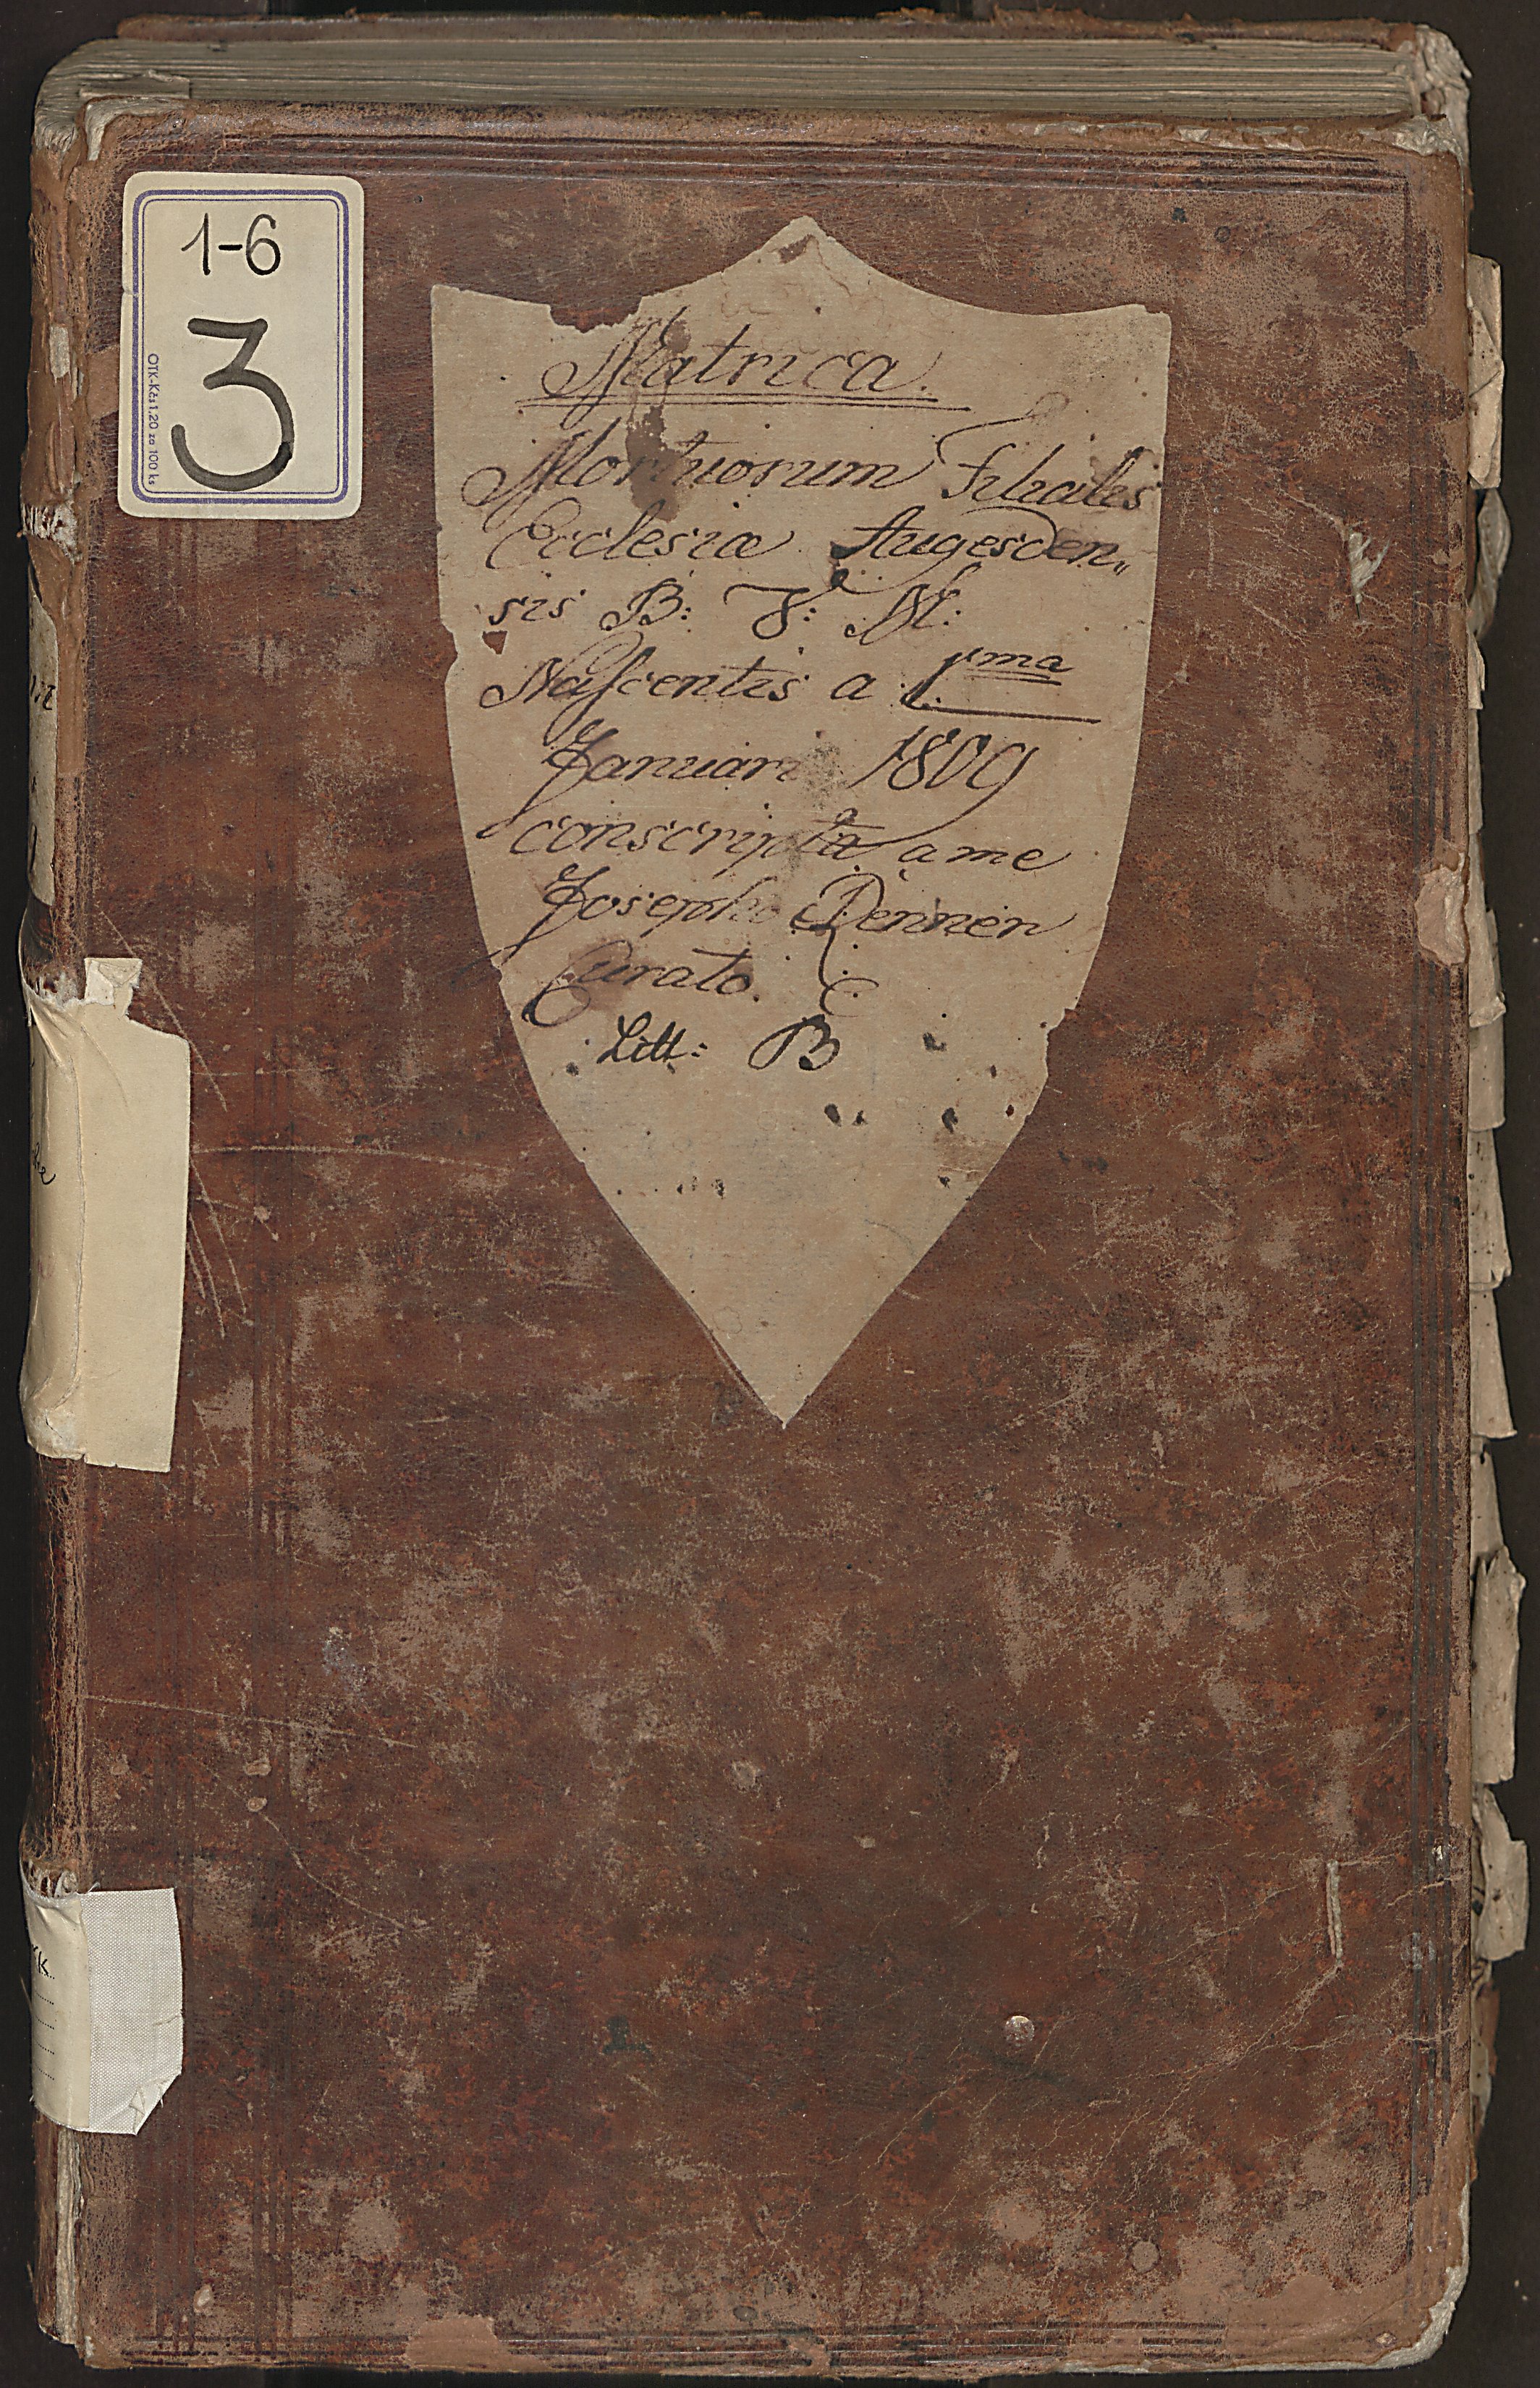 1-6
3
OTK-Kčs 1.20 za 100 ks
Matrica.
Mortuorum Filialis
Ecclesiæ Augesden„
sis B: V: M:
Nascentis a 1ma
Januari 1809
conscripta a me
Josepho Dennen
Curato.
Litt: B